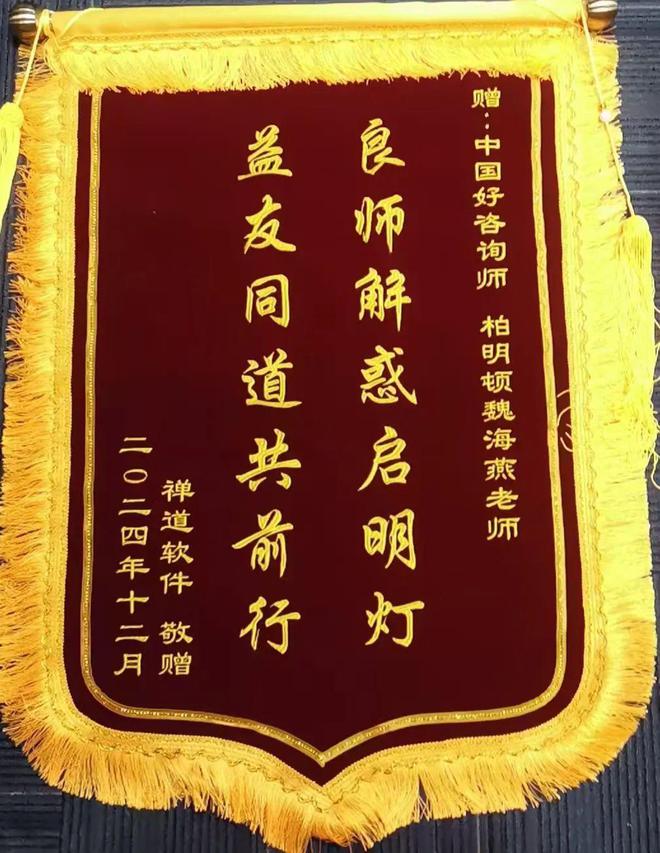 赠:中国好咨询师 柏明顿魏海燕老师
良师解惑启明灯
益友同道共前行
禅道软件 敬赠
二〇二四年十二月